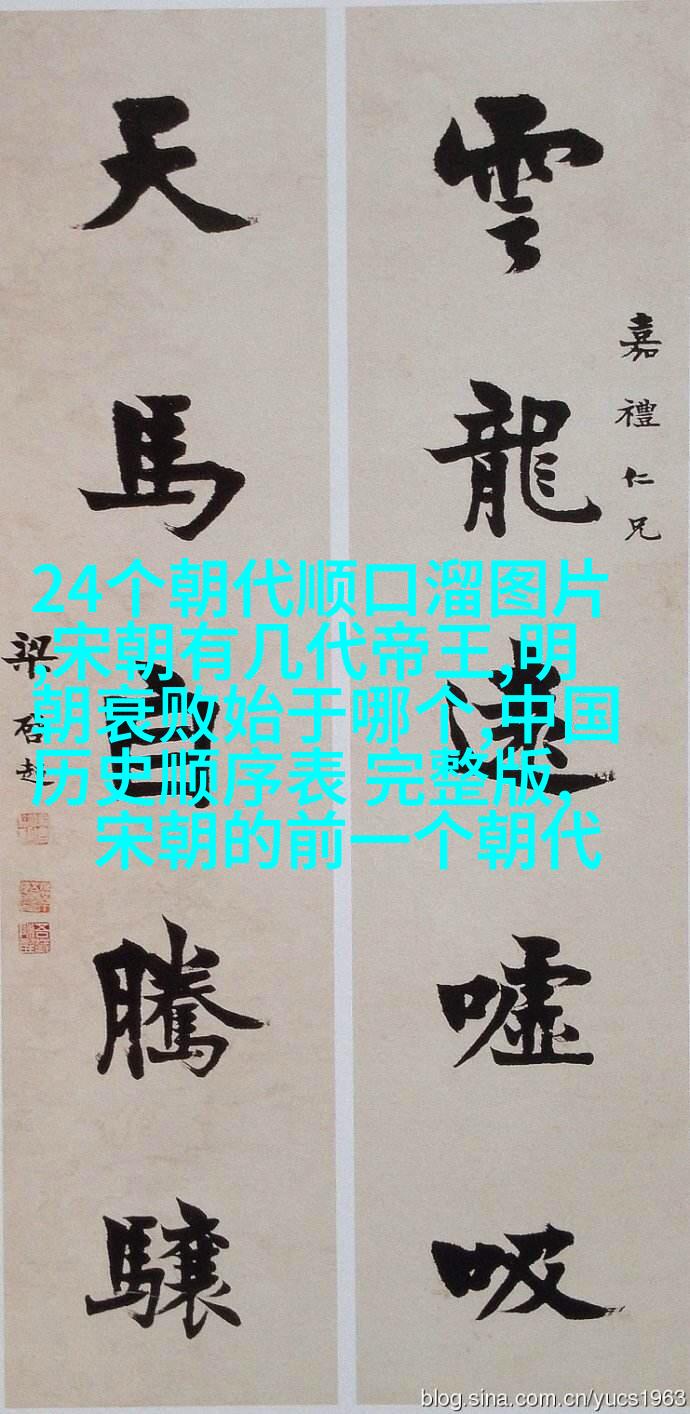 雲龍噓吸
嘉禮仁兄
天馬自騰驤
梁啓超
24个朝代顺口溜图片
,宋朝有几代帝王,明
朝衰败始于哪个,中国
历史顺序表 完整版,
宋朝的前一个朝代
blog.sina.com.cn/yucs1963